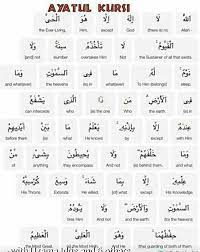 AYATUL KURSI
اللَّهُ لَا إِلَٰهَ إِلَّا هُوَ الْحَيُّ
the Ever Living, Him, except God (there is) no Allah -
الْقَيُّومُ لَا تَأْخُذُهُ سِنَةٌ وَلَا
[and] not slumber overtakes Him Not the Sustainer of all that exists.
نَوْمٌ لَهُ مَا فِي السَّمٰوٰتِ وَمَا
and whatever the heavens (is) in whatever To Him (belongs) sleep.
فِي الْأَرْضِ مَنْ ذَا الَّذِي يَشْفَعُ
can intercede who (is) the one Who the earth. (is) in
عِنْدَهُ إِلَّا بِإِذْنِهِ يَعْلَمُ مَا بَيْنَ أَيْدِيهِمْ
before them (is) what He knows by His permission. except with Him
وَمَا خَلْفَهُمْ وَلَا يُحِيطُونَ بِشَيْءٍ مِنْ
of anything they encompass And not (is) behind them. and what
عِلْمِهِ إِلَّا بِمَا شَاءَ وَسِعَ كُرْسِيُّهُ
His Throne Extends He willed. of what except His Knowledge
السَّمٰوٰتِ وَالْأَرْضَ وَلَا يَئُودُهُ حِفْظُهُمَا
(the) guarding of both of them. tires Him And not and the earth. the heavens
وَهُوَ الْعَلِيُّ الْعَظِيمُ
the Most Great. (is) the Most High, And He